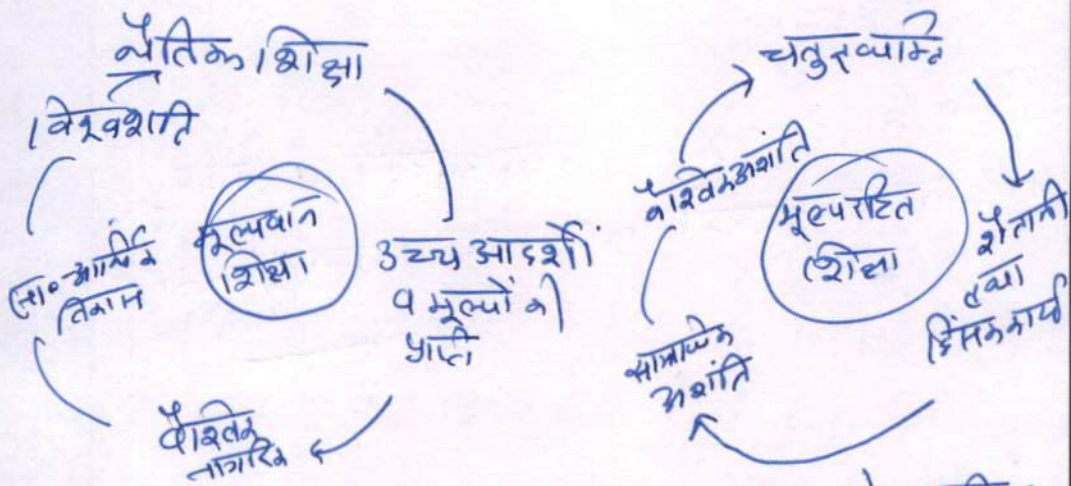 नैतिक शिक्षा
विश्वशांति
मूल्यवान
शिक्षा
उच्च आदर्शों
व मूल्यों की
प्राप्ति
सा० आर्थिक
विकास
वैश्विक
नागरिक
चतुर व्यक्ति
वैश्विक अशांति
मूल्यरहित
शिक्षा
शैतानी
तथा
हिंसक कार्य
सामाजिक
अशांति